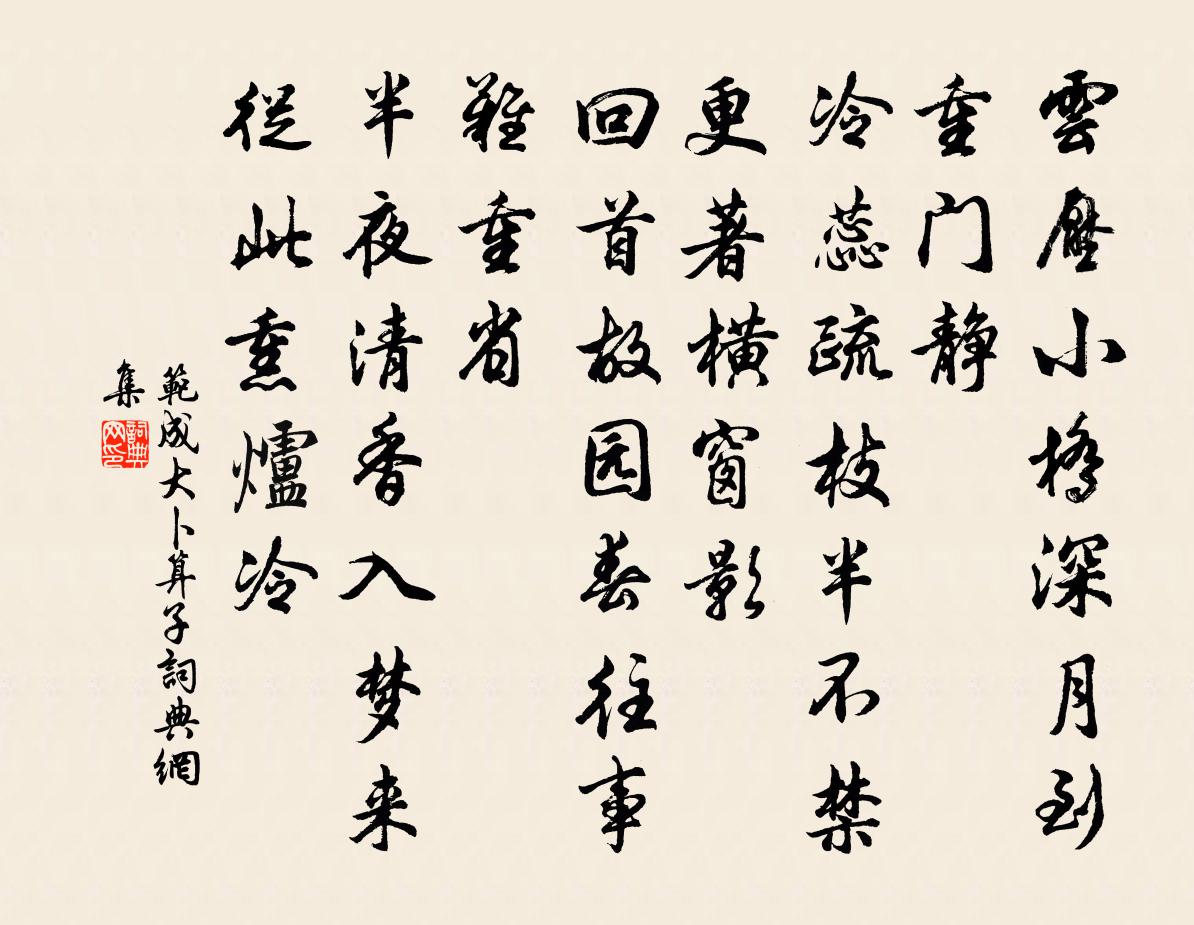 雲壓小橋深月到
重门静
冷蕊疏枝半不禁
更著橫窗影
回首故园春往事
難重省
半夜清香入梦来
從此熏爐冷
範成大卜算子詞典網
集
詞典
网印